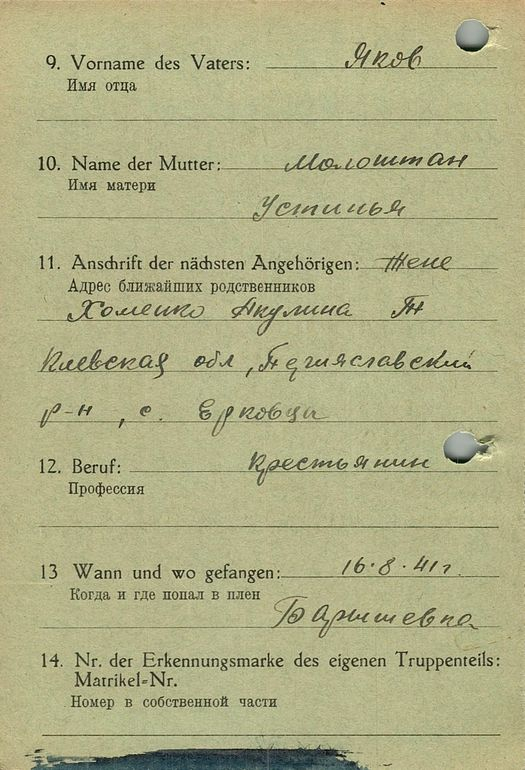 9. Vorname des Vaters: Яков
Имя отца
10. Name der Mutter: Молоштан
Имя матери
Устинья
11. Anschrift der nächsten Angehörigen: Жене
Адрес ближайших родственников
Хоменко Акулина
Киевская обл,
р-н, с. Ерковцы
12. Beruf: крестьянин
Профессия
13 Wann und wo gefangen: 16.8.41г.
Когда и где попал в плен
Барышевка
14. Nr. der Erkennungsmarke des eigenen Truppenteils:
Matrikel=Nr.
Номер в собственной части